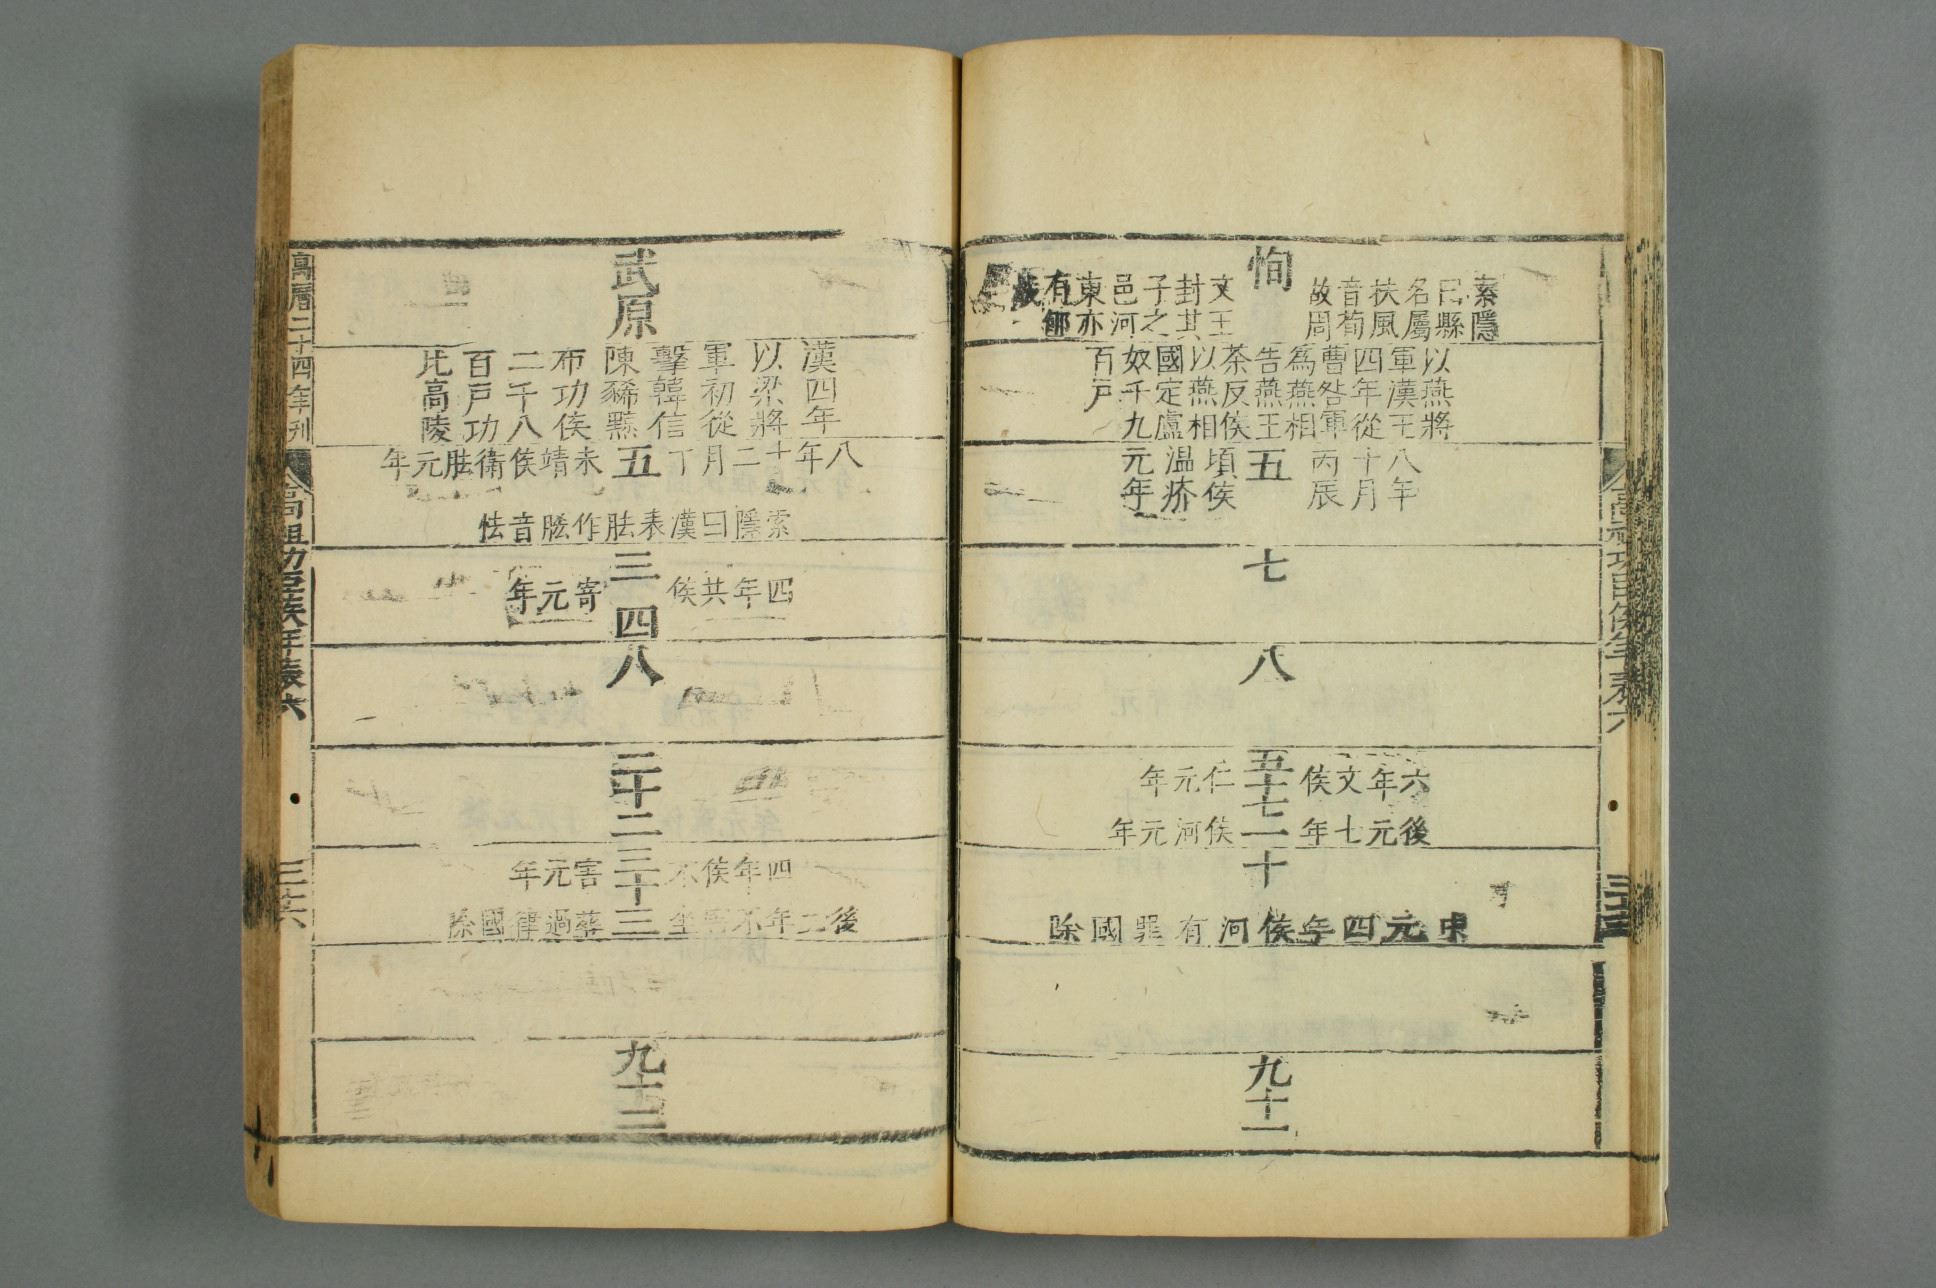 恂
索隱
曰縣
名屬
扶風
音荀
故周
文王
封其
子之
邑河
東亦
有郇
以燕將
軍漢王
四年從
曹咎軍
為燕相
告燕王
荼反侯
以燕相
國定盧
奴千九
百戶
八年
十月
丙辰
五
頃侯
温疥
元年
七
八
五
六年文侯仁元年
十七
一
後元七年侯河元年
十
中元四年侯河有罪國除
九十一
武原
漢四年
以梁將
軍初從
擊韓信
陳豨黥
布功侯
二千八
百戶功
比高陵
五
八年十二月丁未靖侯衛胠元年
索隱曰漢表胠作脇音怯
三
四年共侯寄元年
四
八
二十二
三
四年侯不害元年
十三
後二年不害坐葬過律國除
九十二
萬曆二十四年刊
高祖功臣侯年表六
三十六